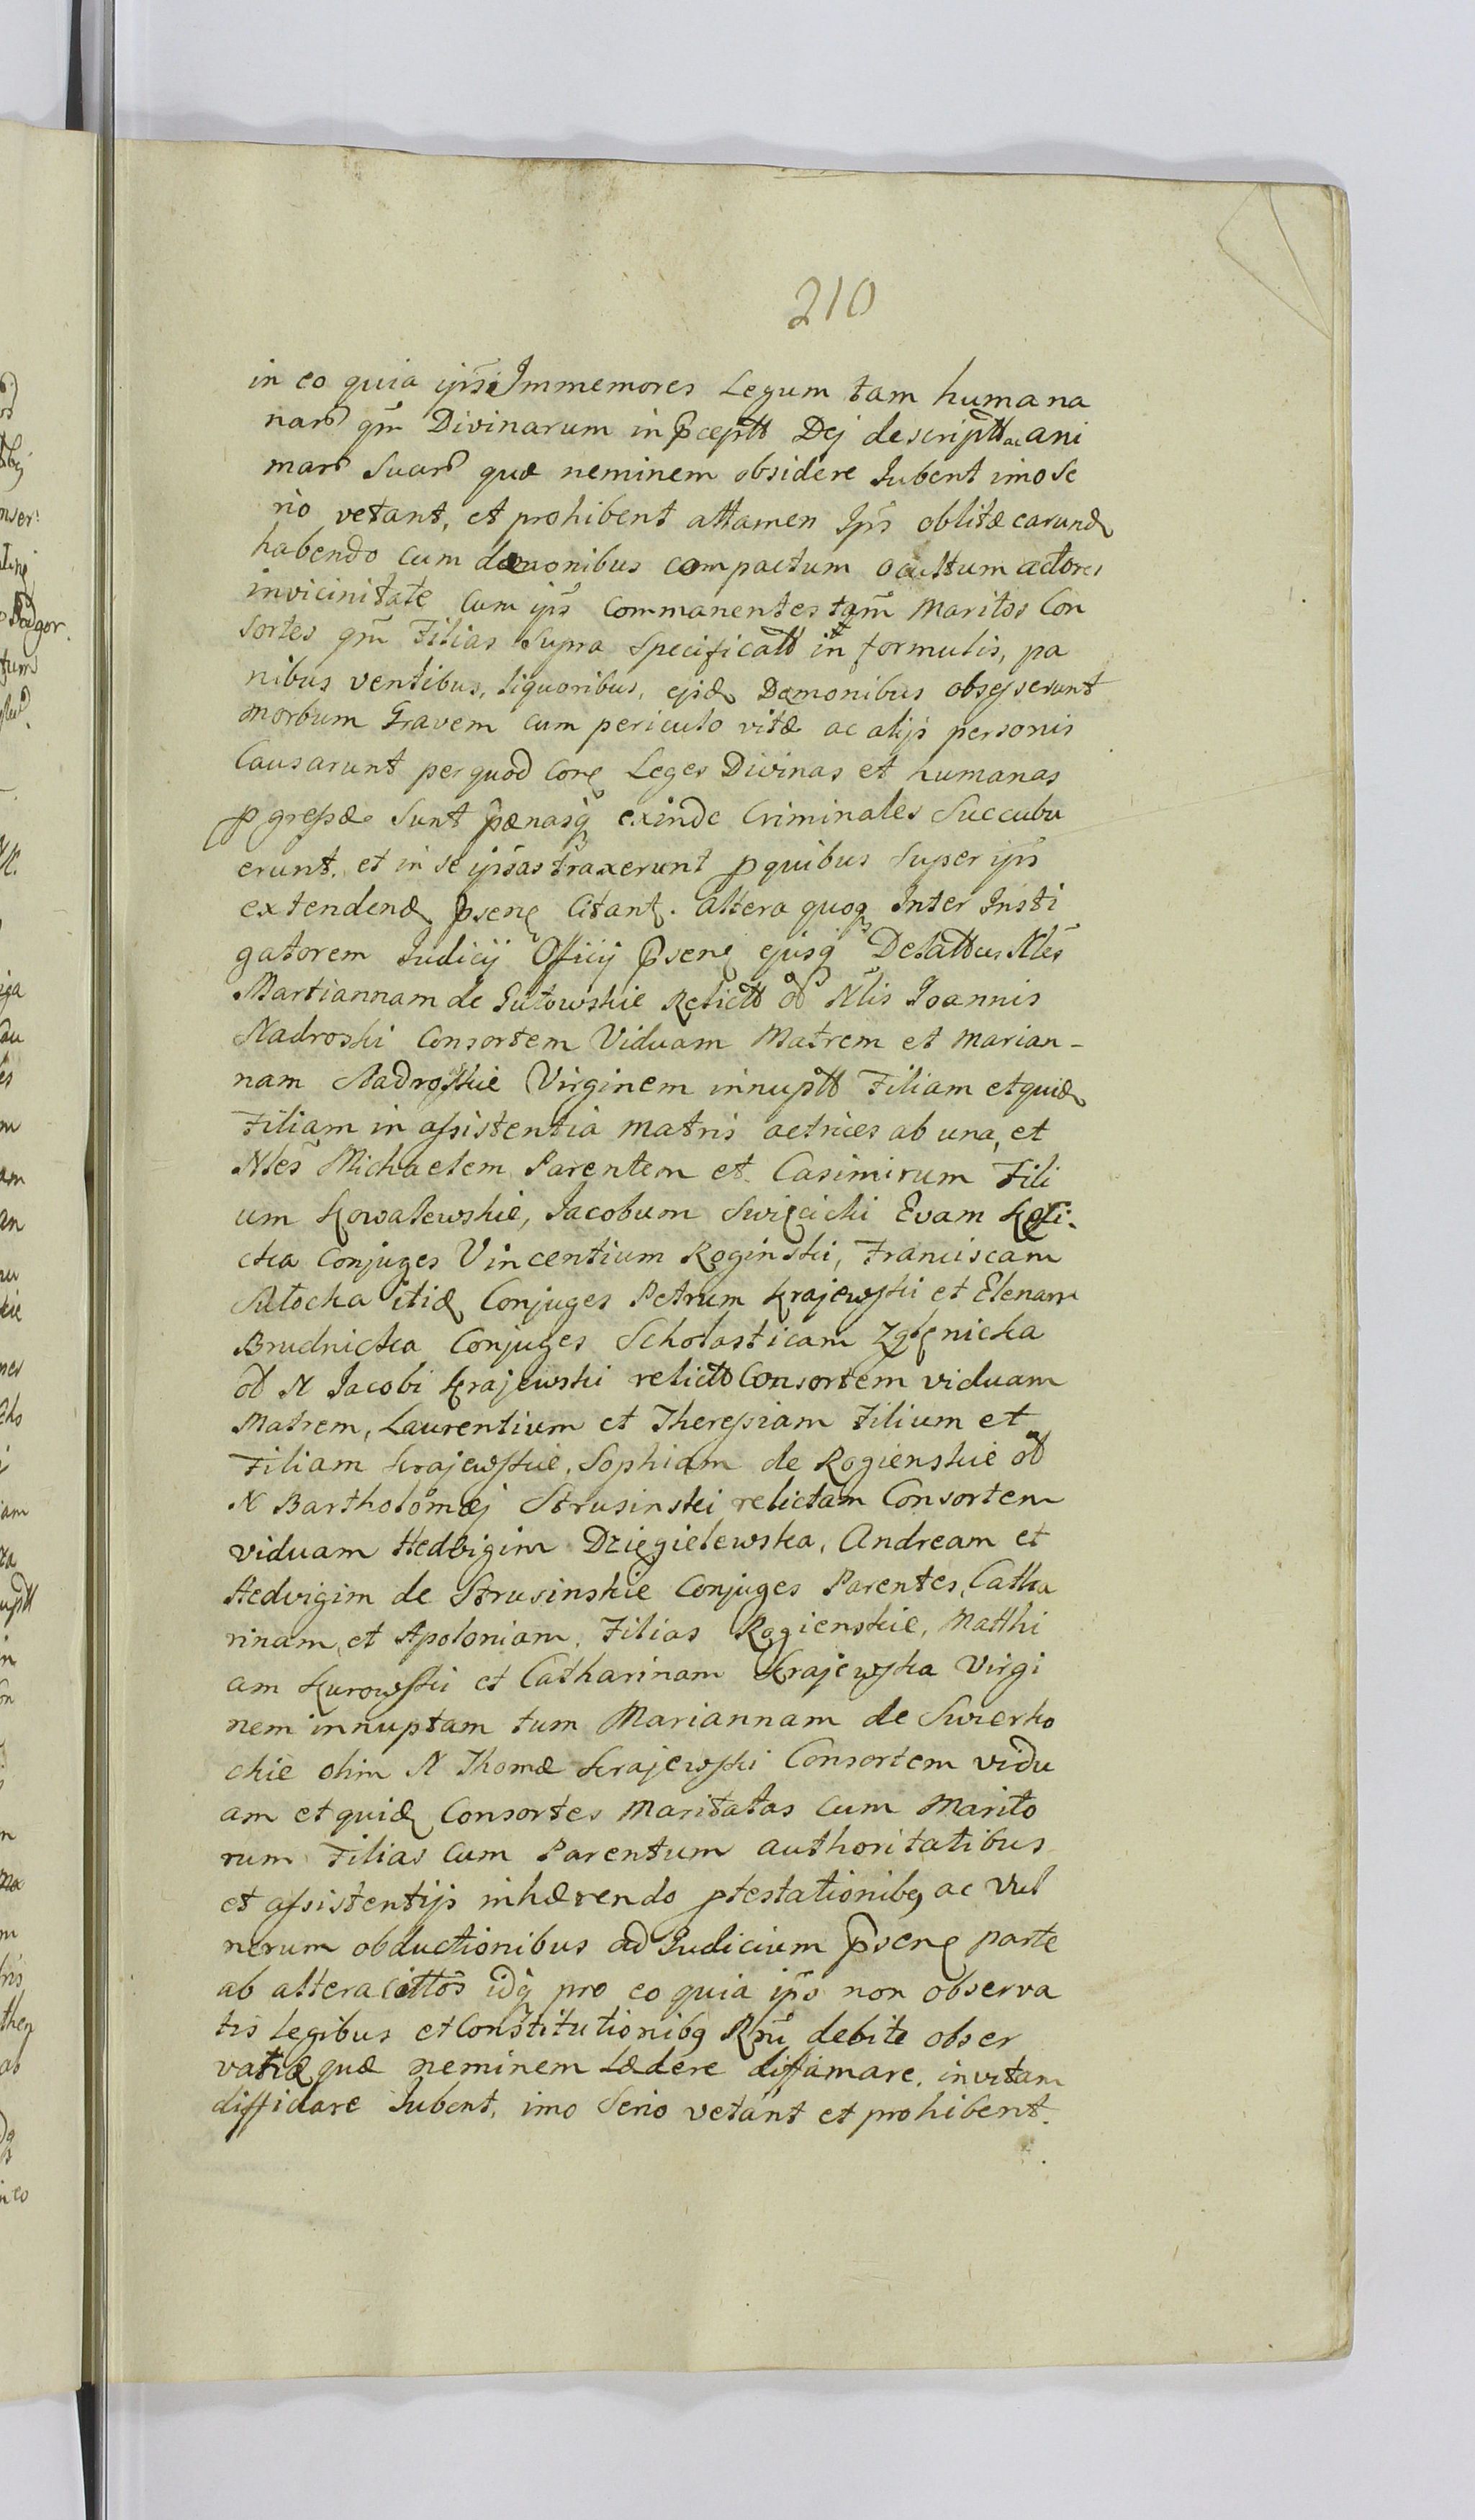 210
in eo quia ipsi Immemores Legum tam humana
nar qm Divinarum in pceptt Dej descriptt ac ani
mar Suar quæ neminem obsidere Jubent imo Se
rio vetant, et prohibent attamen Ips oblitæ earund
habendo cum dæmonibus compactum ocultum actores
in vicinitate Cum ips Commanentes tam Maritos Con
Sortes qm Filias Supra Specificatt in formulis, pa
nibus ventibus, liquoribus, ejsd Dæmonibus obsesserunt
Morbum Gravem cum periculo vitæ ac alijs personis
Causarunt per quod Leges Divinas et humanas
pgressæ Sunt pænasq exinde Criminales Succubu
erunt, et in se ipsas traxerunt p quibus Super ips
extendend psene Citant. altera quoq Inter Insti
gatorem Judicij Officij psene ejusq Nles
Martiannam de Gutowskie Relictt od Nlis Joannis
Nadroski Consortem Viduam Matrem et Marian-
nam Nadroskie Virginem innuptt Filiam et quid
Filiam in assistentia Matris actrices ab una, et
Nles Michaelem Parentem et Casimirum Fili
um Kowalewskie, Jacobum Swięcicki Evam
cka Conjuges Vincentium Roginski, Franciscam
itid Conjuges Petrum Krajewski et Elenam
Brudnicka Conjuges Scholasticam Zglenicka
od N Jacobi Krajewski relictt Consortem viduam
Matrem, Laurentium et Theressiam Filium et
Filiam Krajewskie, Sophiam de Rogienskie od
N Bartholomæj Strusinski relictam Consortem
viduam Hedvigim Dzięgielewska, Andream et
Hedvigim de Strusinskie Conjuges Parentes, Catha
rinam, et Apoloniam, Filias Rogienskie, Matthi
am Kurowski et Catharinam Krajewska Virgi
nem innuptam tum Mariannam de Swierko
ckie olim N Thomæ Krajewski Consortem vidu
am et quid Consortes Maritatas cum Marito
rum Filias cum Parentum authoritatibus
et assistentijs inhærendo ptestationibq ac vul
nerum obductionibus ad Judicium psene parte
ab altera Cittos idq pro eo quia ips non observa
tis Legibus et Constitutionibq Rni debite obser
quæ neminem Lædere diffamare, in vitam
diffidare Jubent, imo Serio vetant et prohibent.